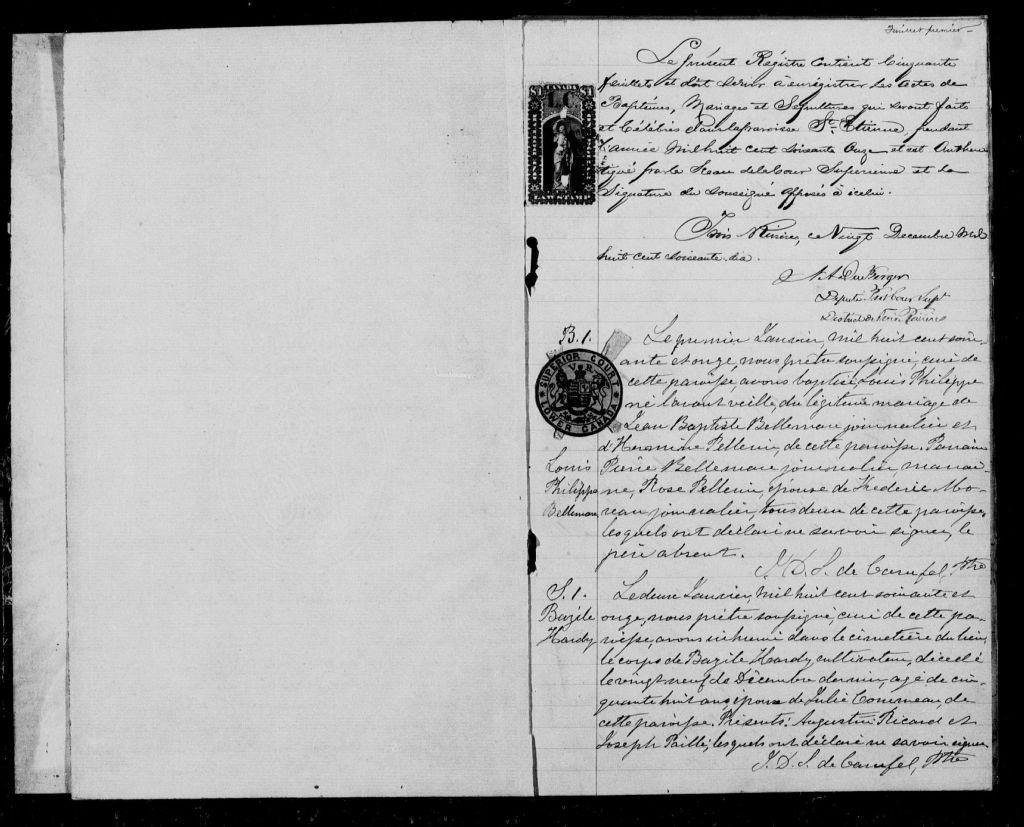 feuillet premier
Le présent Régistre contient Cinquante
feuillets et doit servir à enrégistrer les actes de
Baptêmes, Mariages et Sépultures qui seront faits
et Célébrés dans la paroisse St. Etienne, pendant
l'année Mil huit cent soixante Onze et est Authen
tiqué par le Sceau de la Cour Supérieure et la
Signature du soussigné apposés à icelui.
Trois Rivières, ce Vingt Decembre Mil
huit cent soixante dix.
Deputé Prot Cour Supr
District de Trois Rivières
CANADA
$1 L.C. $1
B. 1.
SUPERIOR COURT
V R
LOWER CANADA
Louis
Philippe
Bellemare
Le premier Janvier, mil huit cent soix-
ante et onze, nous prêtre soussigné, curé de
cette paroisse, avons baptisé Louis Philippe
né l'avant veille, du légitime mariage de
Jean Baptiste Bellemare journalier et
d'Hermine Pellerin, de cette paroisse. Parrain
Pierre Bellemare journalier, marrai
ne, Rose Pellerin, épouse de Frederic Mo-
reau journalier, tous deux de cette paroisse,
lesquels ont déclaré ne savoir signer, le
père absent.
J. D. S. de Carufel, Ptre
S. 1.
Bazile
Hardy
Le deux Janvier, mil huit cent soixante et
onze, nous prêtre soussigné, curé de cette pa-
roisse, avons inhumé dans le cimetière du lieu,
le corps de Bazile Hardy, cultivateur, décédé
le vingt neuf de Décembre dernier, agé de cin-
quante huit ans époux de Julie Comeau, de
cette paroisse. Présents: Augustin Ricard et
Joseph Paillé, lesquels ont déclaré ne savoir signer
J. D. S. de Carufel, Ptre